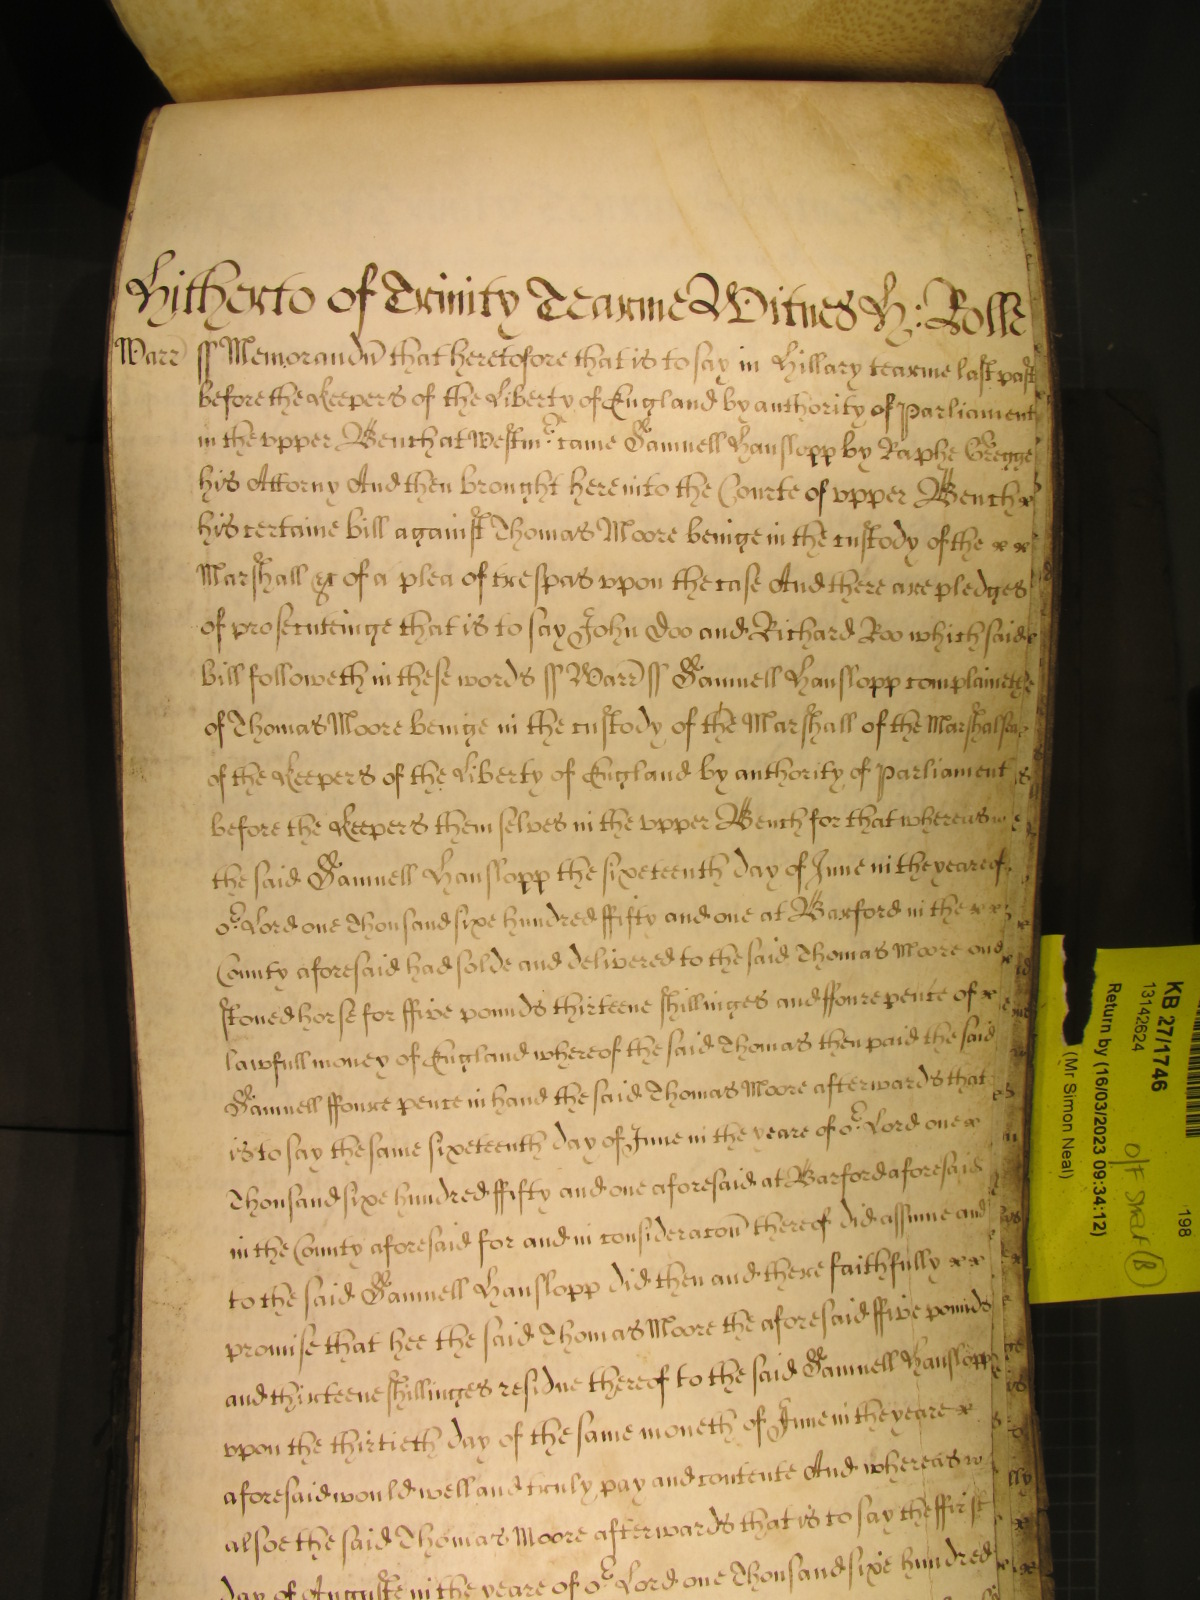 Hitherto of Trinity Tearme Witnes H: Rolle
Warr ss Memorandu that heretofore that is to say in Hillary tearme last past
before the Keepers of the Liberty of England by authority of Parliament
in the upper Bench at Westmr came Samuell Hanslopp by Raphe Gregge
his Attorny And then brought here into the Courte of upper Bench x
his certaine bill against Thomas Moore beinge in the custody of the x x
Marshall &c of a plea of trespas upon the case And there are pledges
of prosecuteinge that is to say John Doo and Richard Roo which said
bill followeth in these words ss Warr ss Samuell Hanslopp complaineth
of Thomas Moore beinge in the custody of the Marshall of the Marshalsea
of the Keepers of the Liberty of England by authority of Parliament
before the Keepers themselves in the upper Bench for that whereas
the said Samuell Hanslopp the sixeteenth day of June in the yeare of
or Lord one Thousand sixe hundred ffifty and one at Barford in the x x
County aforesaid had solde and delivered to the said Thomas Moore one
stoned horse for ffive pounds thirteene shillinges and ffoure pence of x
lawfull money of England whereof the said Thomas then paid the said
Samuell ffoure pence in hand the said Thomas Moore afterwards that
is to say the same sixeteenth day of June in the yeare of or Lord one x
Thousand sixe hundred ffifty and one aforesaid at Barford aforesaid
in the County aforesaid for and in consideracon thereof did assume and
to the said Samuell Hanslopp did then and there faithfully x x
promise that hee the said Thomas Moore the aforesaid ffive pounds
and thirteene shillinges residue thereof to the said Samuell Hanslopp
upon the thirtieth day of the same moneth of June in the yeare x
aforesaid would well and truly pay and contente And whereas
alsoe the said Thomas Moore afterwards that is to say the ffirst
day of Auguste in the yeare of or Lord one Thousand sixe hundred
KB 27/1746
13142624
Return by (16/03/2023 09:34:12)
(Mr Simon Neal)
198
O/F Shelf (B)